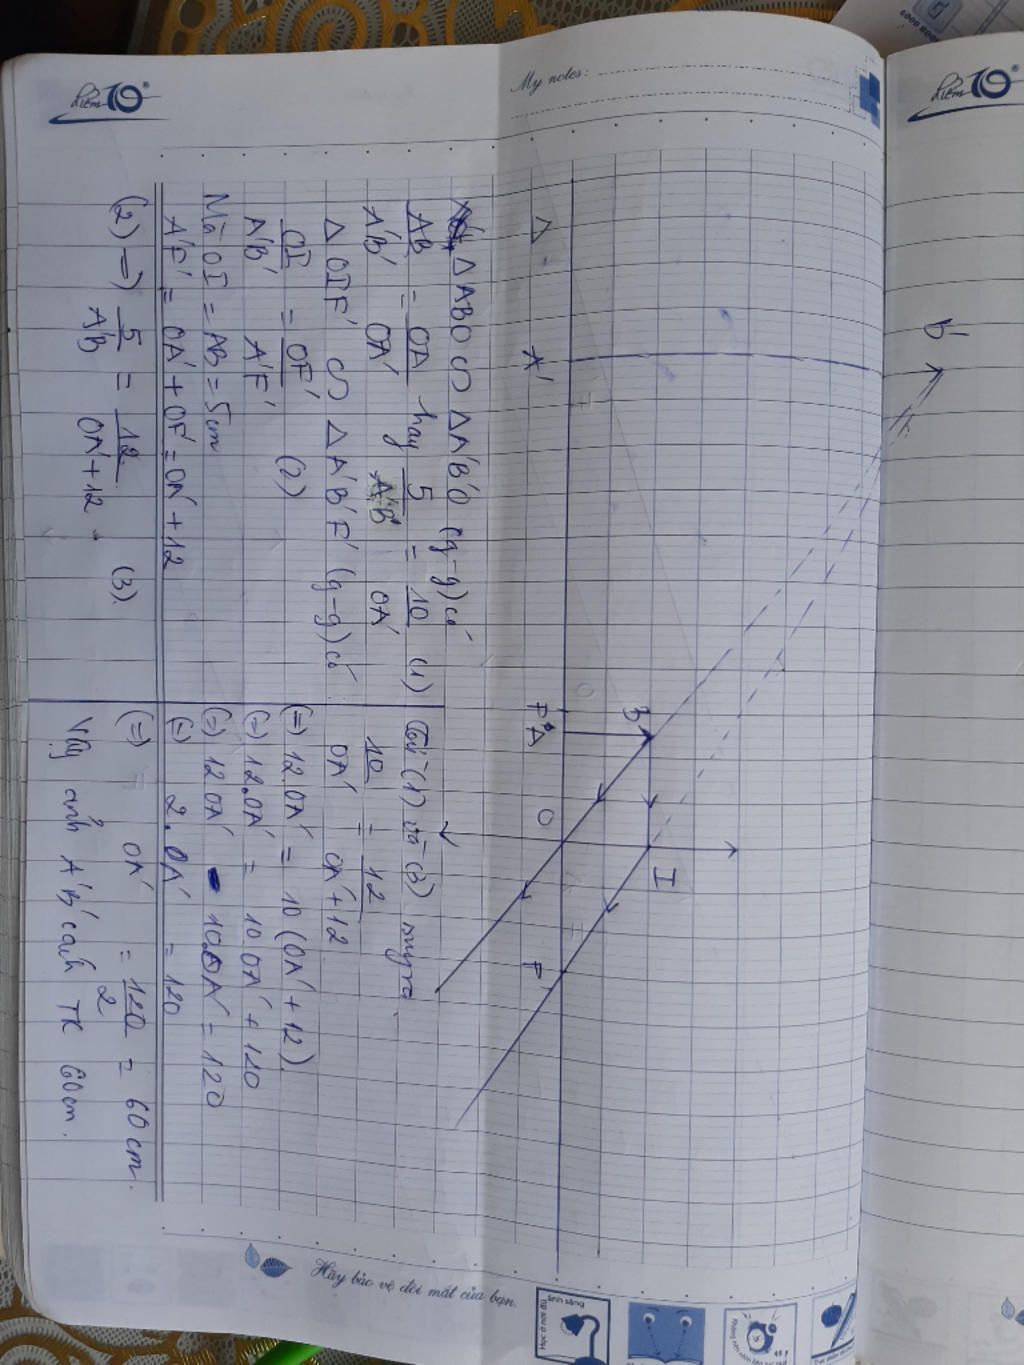 Điểm 10
Điểm 10
My notes:
B'
I
B
Δ
A'
F
A
O
F'
Δ ABO ∽ Δ A'B'O (g-g) có
AB/A'B' = OA/OA' hay 5/A'B' = 10/OA' (1)
Δ OIF' ∽ Δ A'B'F' (g-g) có
OI/A'B' = OF'/A'F' (2)
Mà OI = AB = 5cm
A'F' = OA' + OF' = OA' + 12
(2) => 5/A'B' = 12/OA'+12 (3).
Từ (1) và (3) suy ra
10/OA' = 12/OA'+12
(=) 12 OA' = 10 (OA' + 12).
(=) 12.OA' = 10 OA' + 120
(=) 12 OA' - 10 OA' = 120
(=) 2.OA' = 120
(=) OA' = 120/2 = 60 cm.
Vậy ảnh A'B' cách TK 60cm.
Hãy bảo vệ đôi mắt của bạn.
Học ở nơi đủ
ánh sáng